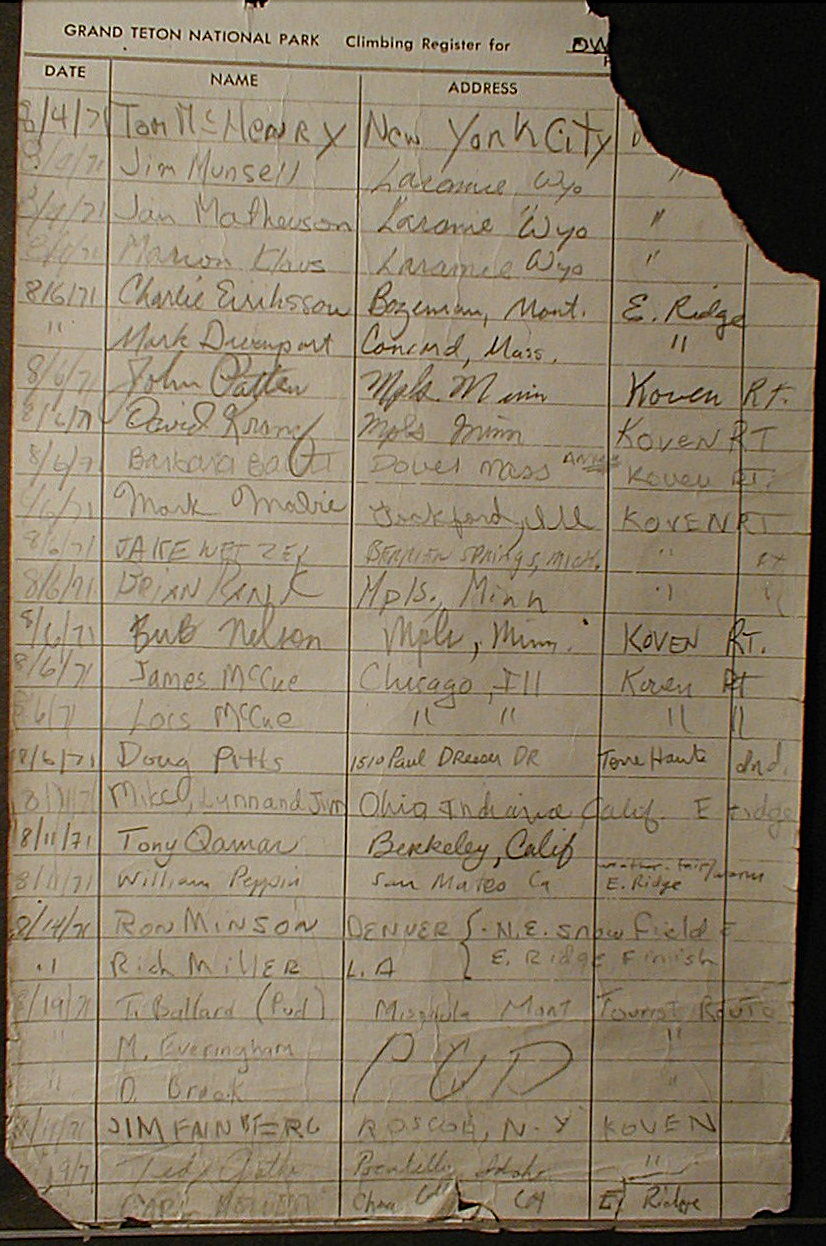 GRAND TETON NATIONAL PARK Climbing Register for OW
DATE NAME ADDRESS
8/4/71 Tom McHENRY New York City
Jim Munsell Laramie, Wyo "
8/4/71 Jan Mathewson Laramie Wyo "
Marion Klaus Laramie Wyo "
8/6/71 Charlie Eiriksson Bozeman, Mont. E. Ridge
" Mark Davenport Concord, Mass. "
8/6/71 John Patten Mpls. Minn Koven Rt.
8/6/71 David Mpls Minn KOVEN RT
8/6/71 Barbara Dover Mass Koven RT.
8/6/71 Mark Mabie Rockford, Ill KOVEN RT
8/6/71 JAKE WETZEL BERRIEN SPRINGS, MICH. " RT
8/6/71 BRIAN RANK Mpls., Minn " "
8/6/71 Bub Nelson Mpls, Minn. KOVEN RT.
8/6/71 James McCue Chicago, Ill Koven Rt
8/6/71 Lois McCue " " " "
8/6/71 Doug Pitts 1510 Paul Dresser DR Terre Haute Ind.
Lynn and Jim Ohio Indiana Calif. E ridge
8/11/71 Tony Qamar Berkeley, Calif
8/11/71 William Peppin San Mateo Ca weather-fair/warm E. Ridge
8/14/71 RON MINSON DENVER { N.E. Snow field
" Rich MILLER L.A E. Ridge Finish
8/19/71 T. Ballard (Pud) Missoula Mont Tourist Route
" M. Everingham PUD "
" D. Brook "
JIM FAINBERG ROSCOE, N-Y KOVEN
Ted Pocatello, Idaho "
CA E Ridge